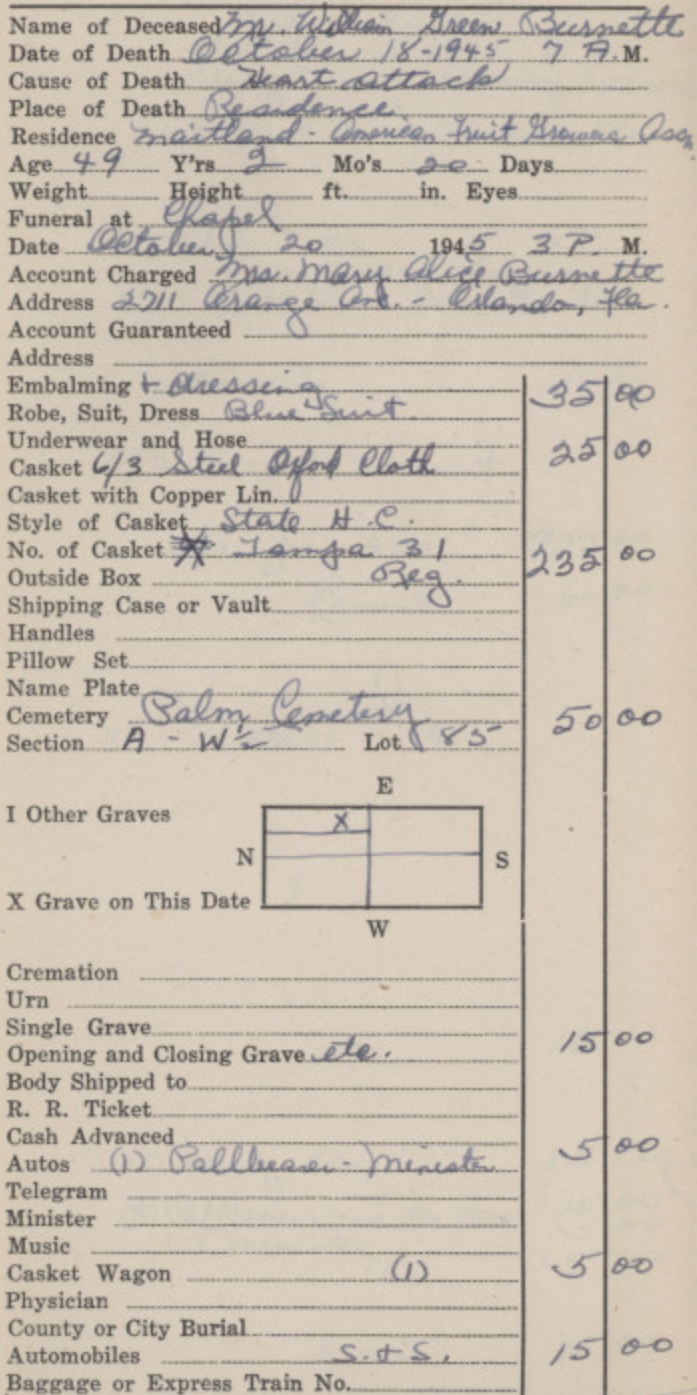 Name of Deceased Mr. William Green Burnette
Date of Death October 18-1945 7 A. M.
Cause of Death Heart attack
Place of Death Residence
Residence Maitland - American Fruit Growers Assn
Age 49 Y'rs 2 Mo's 20 Days
Weight Height ft. in. Eyes
Funeral at Chapel
Date October 20 1945 3 P. M.
Account Charged Mrs. Mary Alice Burnette
Address 2711 Orange Ave. - Orlando, Fla.
Account Guaranteed
Address
Embalming + dressing 35 00
Robe, Suit, Dress Blue Suit
Underwear and Hose 25 00
Casket 6/3 Steel Oxford Cloth
Casket with Copper Lin.
Style of Casket State H. C.
No. of Casket Tampa 31 235 00
Outside Box Reg.
Shipping Case or Vault
Handles
Pillow Set
Name Plate
Cemetery Palm Cemetery 50 00
Section A - W 1/2 Lot 85
E
I Other Graves
X
N S
X Grave on This Date
W
Cremation
Urn
Single Grave
Opening and Closing Grave etc. 15 00
Body Shipped to
R. R. Ticket
Cash Advanced
Autos (1) Pallbearer - Minister 5 00
Telegram
Minister
Music
Casket Wagon (1) 5 00
Physician
County or City Burial
Automobiles S. + S. 15 00
Baggage or Express Train No.